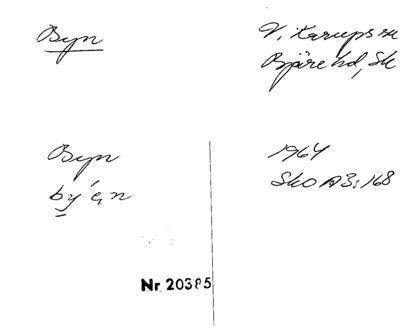 Byn
V. Karups sn
Bjäre hd, Sk
Byn
bý ę n
1964
Sko A3:168
Nr. 20385